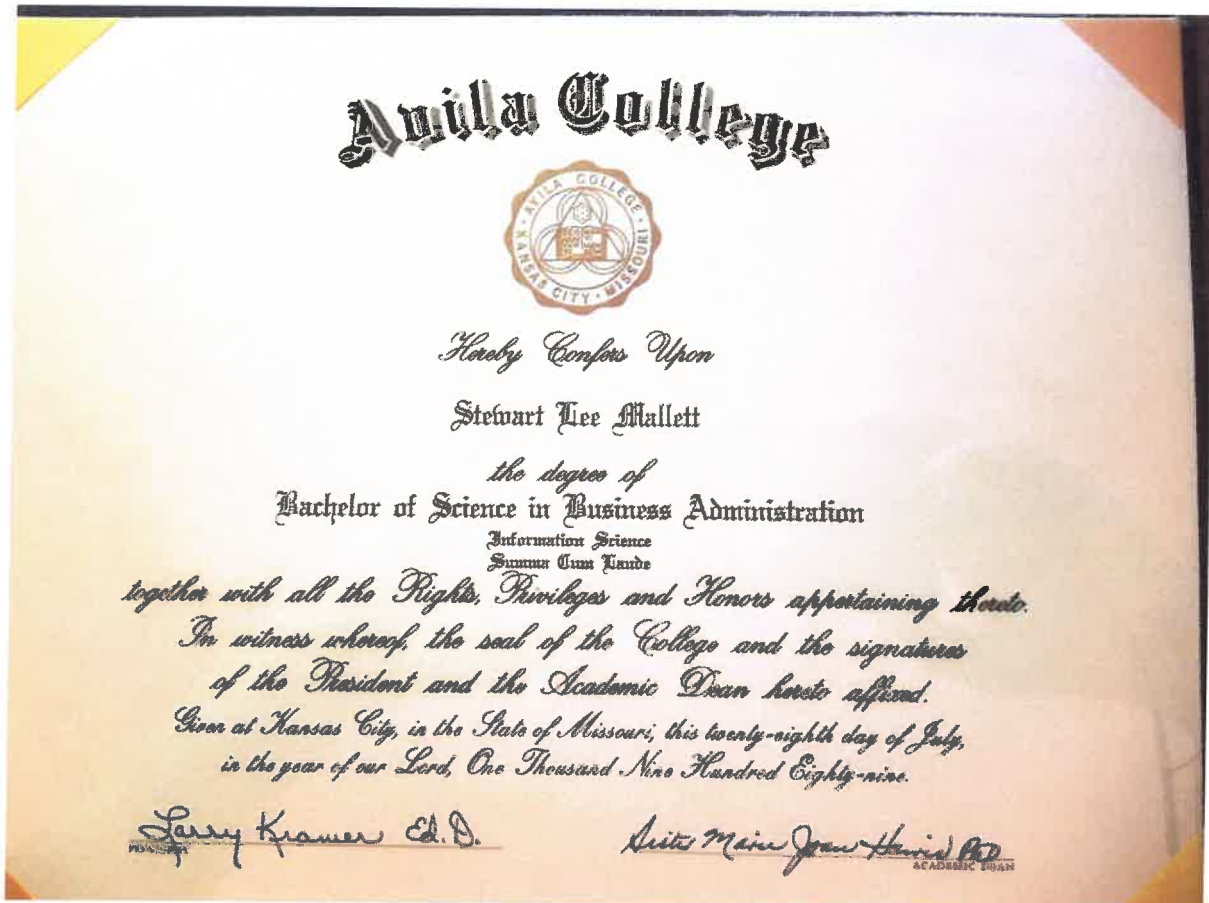 Avila College
· AVILA COLLEGE · KANSAS CITY · MISSOURI
Hereby Confers Upon
Stewart Lee Mallett
the degree of
Bachelor of Science in Business Administration
Information Science
Summa Cum Laude
together with all the Rights, Privileges and Honors appertaining thereto.
In witness whereof, the seal of the College and the signatures
of the President and the Academic Dean hereto affixed.
Given at Kansas City, in the State of Missouri, this twenty-eighth day of July,
in the year of our Lord, One Thousand Nine Hundred Eighty-nine.
Larry Kramer Ed.D.
Sister Marie Joan Harris PhD
PRESIDENT
ACADEMIC DEAN